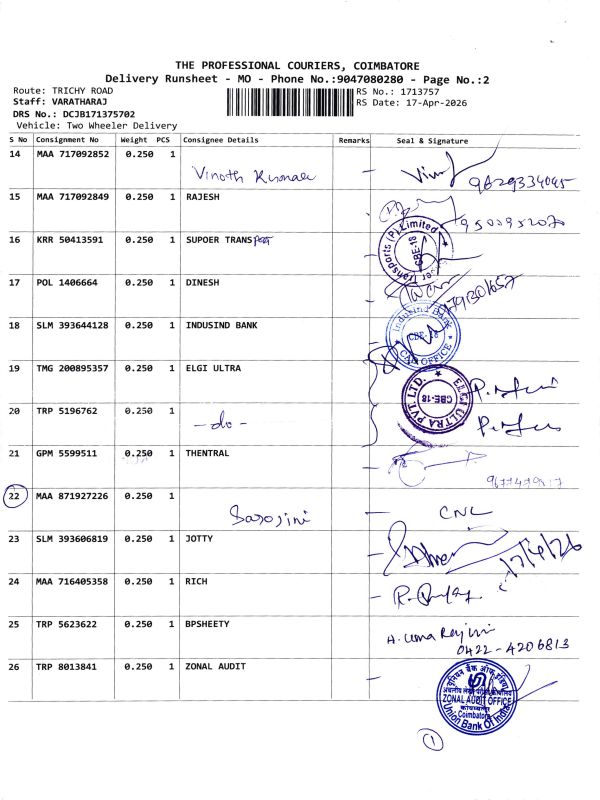 THE PROFESSIONAL COURIERS, COIMBATORE
Delivery Runsheet - MO - Phone No.:9047080280 - Page No.:2
Route: TRICHY ROAD
Staff: VARATHARAJ
DRS No.: DCJB171375702
Vehicle: Two Wheeler Delivery
RS No.: 1713757
RS Date: 17-Apr-2026
S No Consignment No Weight PCS Consignee Details Remarks Seal & Signature
14 MAA 717092852 0.250 1 Vinoth Kumar
15 MAA 717092849 0.250 1 RAJESH
16 KRR 50413591 0.250 1 SUPOER TRANSPORT
CBE-18
17 POL 1406664 0.250 1 DINESH
18 SLM 393644128 0.250 1 INDUSIND BANK
IndusInd Bank
CBE-18
19 TMG 200895357 0.250 1 ELGI ULTRA
ELGI ULTRA PVT. LTD.
CBE-18
20 TRP 5196762 0.250 1 - do -
21 GPM 5599511 0.250 1 THENTRAL
22 MAA 871927226 0.250 1 Sarojini CNL
23 SLM 393606819 0.250 1 JOTTY 17/4/26
24 MAA 716405358 0.250 1 RICH
25 TRP 5623622 0.250 1 BPSHEETY
0422-4206813
26 TRP 8013841 0.250 1 ZONAL AUDIT
ZONAL AUDIT OFFICE
Coimbatore
Union Bank Of India
1